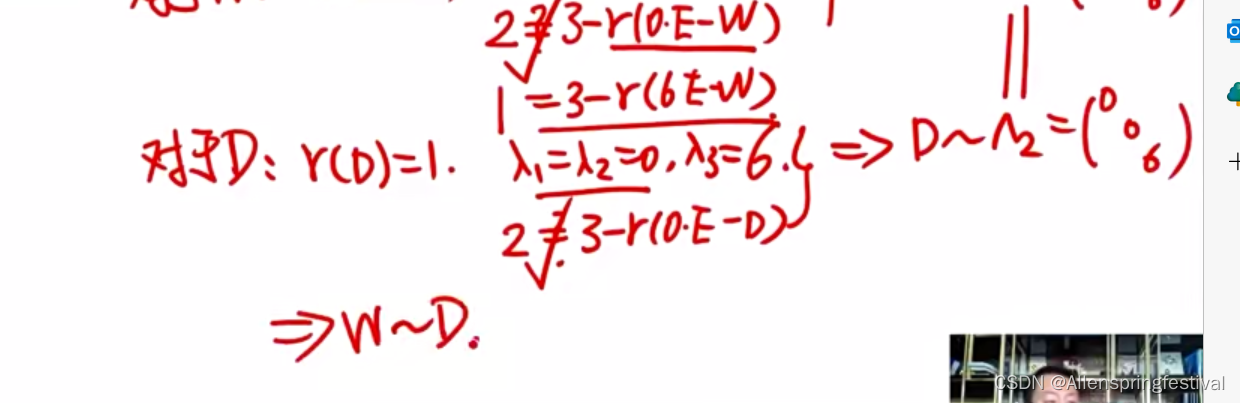 2 ≟ 3-r(0·E-W)
√
1 = 3-r(6E-W).
对于D: r(D)=1. λ₁=λ₂=0, λ₃=6. } ⇒ D~Λ₂=(0 0 6)
2 ≟ 3-r(0·E-D)
√
⇒W~D.
CSDN @Allenspringfestival